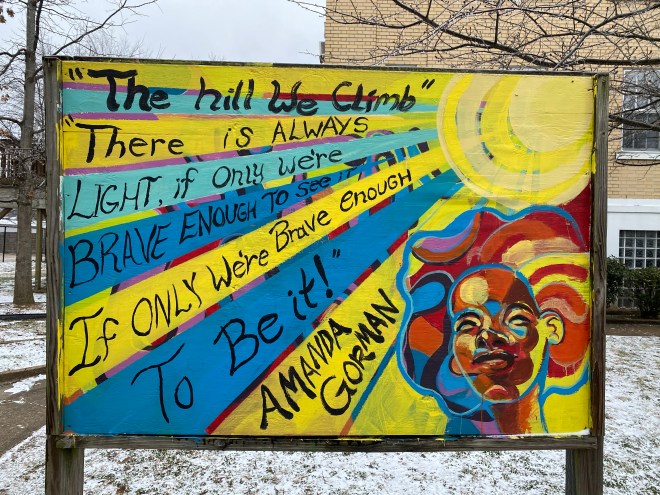 "The hill We Climb"
"There is ALWAYS
LIGHT, if Only we're
BRAVE ENOUGH TO See it
If ONLY We're Brave enough
To Be it!"
AMANDA
GORMAN